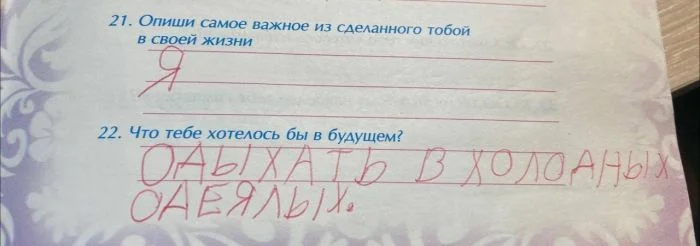 21. Опиши самое важное из сделанного тобой
в своей жизни
Я
22. Что тебе хотелось бы в будущем?
ОДЫХАТЬ В ХОЛОДНЫХ
ОДЕЯЛЫХ.